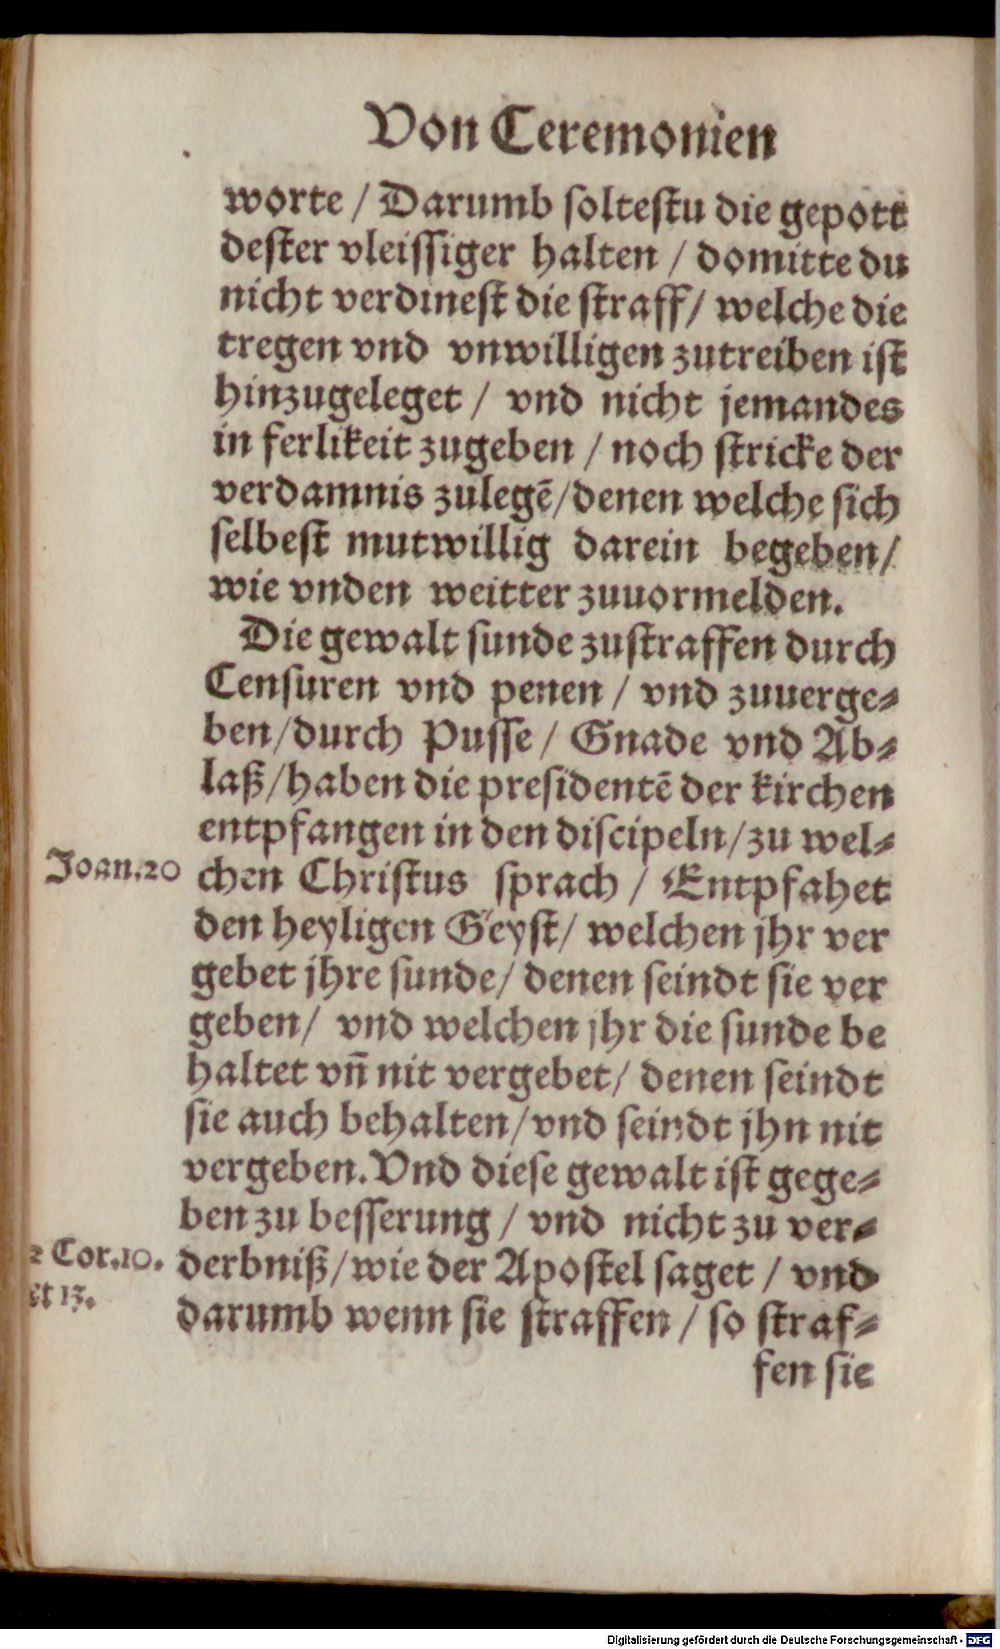 Von Ceremonien
worte / Darumb soltestu die gepott
dester vleissiger halten / domitte du
nicht verdinest die straff / welche die
tregen vnd vnwilligen zutreiben ist
hinzugeleget / vnd nicht jemandes
in ferlikeit zugeben / noch stricke der
verdamnis zulegē / denen welche sich
selbest mutwillig darein begeben /
wie vnden weitter zuuormelden.
Die gewalt sunde zustraffen durch
Censuren vnd penen / vnd zuuerge⸗
ben / durch Pusse / Gnade vnd Ab⸗
laß / haben die presidentē der kirchen
entpfangen in den discipeln / zu wel⸗
Joan.20 chen Christus sprach / Entpfahet
den heyligen Geyst / welchen jhr ver
gebet jhre sunde / denen seindt sie ver
geben / vnd welchen jhr die sunde be
haltet vn̄ nit vergebet / denen seindt
sie auch behalten / vnd seindt jhn nit
vergeben. Vnd diese gewalt ist gege⸗
ben zu besserung / vnd nicht zu ver⸗
2 Cor.10. derbniß / wie der Apostel saget / vnd
et 13. darumb wenn sie straffen / so straf⸗
fen sie
Digitalisierung gefördert durch die Deutsche Forschungsgemeinschaft - DFG